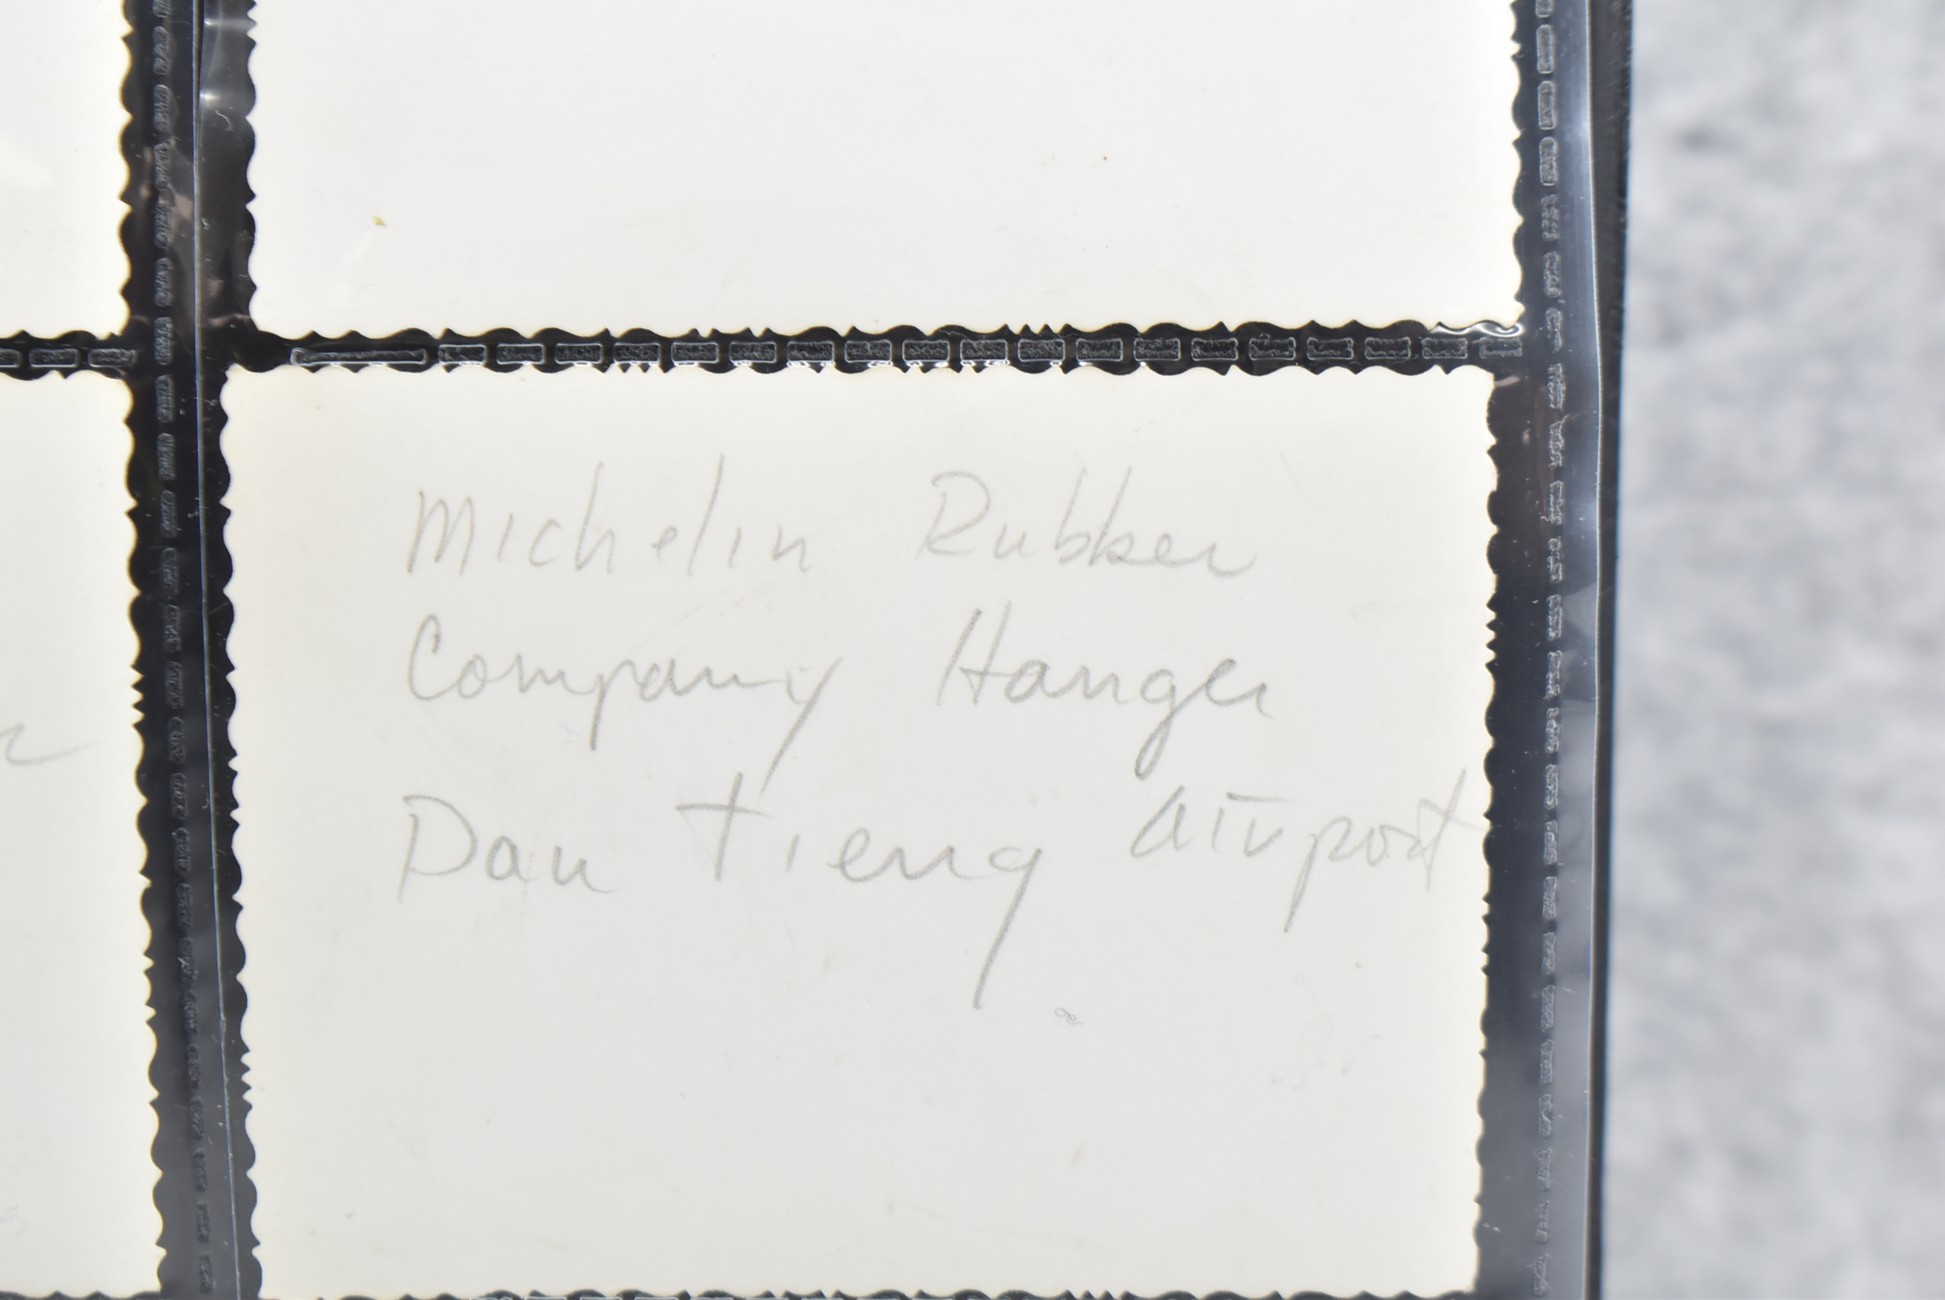 Michelin Rubber
Company Hanger
Dau Tieng airport